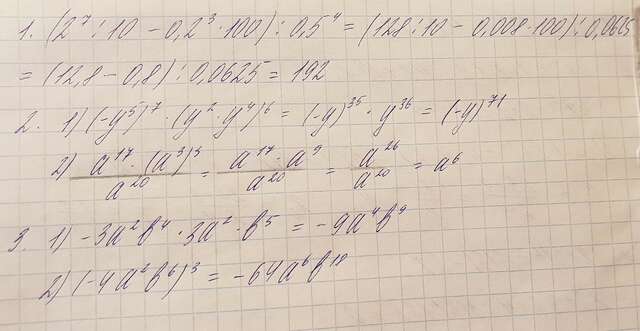 1. (2⁷ : 10 − 0,2³ · 100) : 0,5⁴ = (128 : 10 − 0,008 · 100) : 0,0625
= (12,8 − 0,8) : 0,0625 = 192
2. 1) (−y⁵)⁷ · (y² · y⁴)⁶ = (−y)³⁵ · y³⁶ = (−y)⁷¹
2) a¹⁷ · (a³)³ / a²⁰ = a¹⁷ · a⁹ / a²⁰ = a²⁶ / a²⁰ = a⁶
3. 1) −3a²b⁴ · 3a² · b⁵ = −9a⁴b⁹
2) (−4a²b⁶)³ = −64a⁶b¹⁸